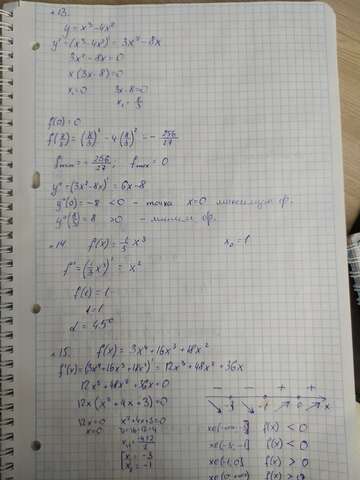 №13.
y = x³ - 4x²
y' = (x³ - 4x²)' = 3x² - 8x
3x² - 8x = 0
x (3x - 8) = 0
x₁ = 0 3x - 8 = 0
x₂ = 8/3
f(0) = 0
f(8/3) = (8/3)³ - 4(8/3)² = - 256/27
fmin = - 256/27; fmax = 0
y'' = (3x² - 8x)' = 6x - 8
y''(0) = -8 < 0 - точка x=0 максимум ф.
y''(8/3) = 8 > 0 - миним ф.
№14 f(x) = 1/3 x³ x₀ = 1
f' = (1/3 x³)' = x²
f(1) = 1
α = 45°
№15. f(x) = 3x⁴ + 16x³ + 18x²
f'(x) = (3x⁴ + 16x³ + 18x²)' = 12x³ + 48x² + 36x
12x³ + 48x² + 36x = 0
12x (x² + 4x + 3) = 0
12x = 0 x² + 4x + 3 = 0
x = 0
x₁ = -3
x₂ = -1
- - + +
-3 -1 0 x
f(x) < 0
x∈(-3; -1) f(x) < 0
x∈(-1; 0) f(x) > 0